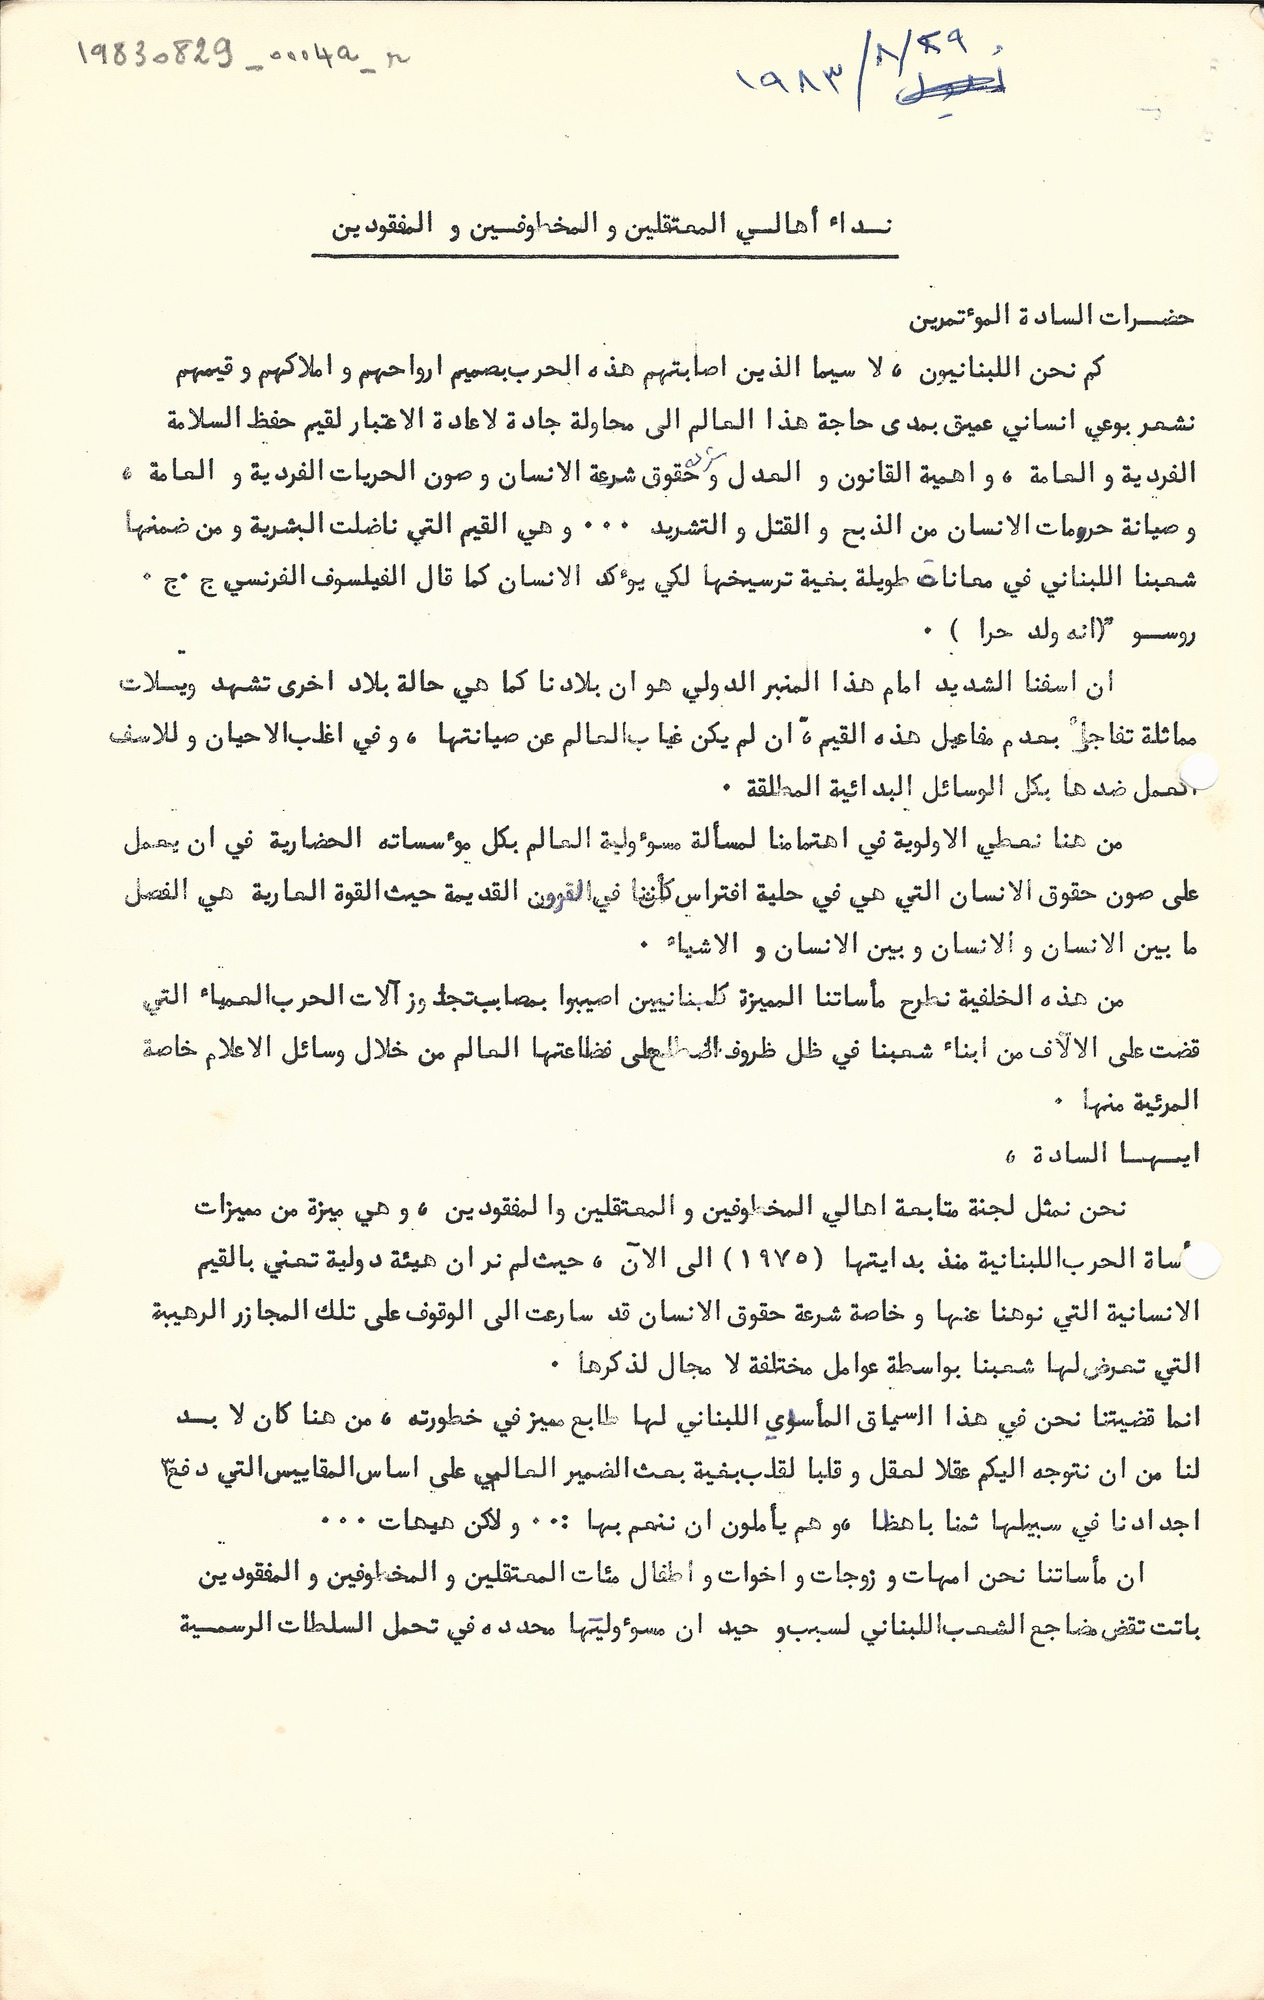 19830829_0004a_r
٢٩/٨/١٩٨٣
نداء أهالي المعتقلين و المخطوفين و المفقودين
حضرات السادة الموءتمرين
كم نحن اللبنانيون ، لا سيما الذين اصابتهم هذه الحرب بصميم ارواحهم و املاكهم و قيمهم
نشعر بوعي انساني عميق بمدى حاجة هذا العالم الى محاولة جادة لاعادة الاعتبار لقيم حفظ السلامة
الفردية و العامة ، و اهمية القانون و العدل و شرعة حقوق شرعة الانسان و صون الحريات الفردية و العامة ،
و صيانة حرومات الانسان من الذبح و القتل و التشريد ... و هي القيم التي ناضلت البشرية و من ضمنها
شعبنا اللبناني في معانات طويلة بغية ترسيخها لكي يوءكد الانسان كما قال الفيلسوف الفرنسي ج . ج .
روسو "(انه ولد حرا ) .
ان اسفنا الشديد امام هذا المنبر الدولي هو ان بلادنا كما هي حالة بلاد اخرى تشهد ويلات
مماثلة تفاجأ بعدم مفاعيل هذه القيم ، ان لم يكن غياب العالم عن صيانتها ، و في اغلب الاحيان و للاسف
العمل ضدها بكل الوسائل البدائية المطلقة .
من هنا نعطي الاولوية في اهتمامنا لمسألة مسوءولية العالم بكل موءسساته الحضارية في ان يعمل
على صون حقوق الانسان التي هي في حلبة افتراس كأننا في القرون القديمة حيث القوة العارية هي الفصل
ما بين الانسان و الانسان و بين الانسان و الاشياء .
من هذه الخلفية نطرح مأساتنا المميزة كلبنانيين اصيبوا بمصاب تجاوز آلات الحرب العمياء التي
قضت على الالآف من ابناء شعبنا في ظل ظروف اضطلع على فظاعتها العالم من خلال وسائل الاعلام خاصة
المرئية منها .
ايها السادة ،
نحن نمثل لجنة متابعة اهالي المخطوفين و المعتقلين والمفقودين ، و هي ميزة من مميزات
أساة الحرب اللبنانية منذ بدايتها (١٩٧٥) الى الآن ، حيث لم نر ان هيئة دولية تعني بالقيم
الانسانية التي نوهنا عنها و خاصة شرعة حقوق الانسان قد سارعت الى الوقوف على تلك المجازر الرهيبة
التي تعرض لها شعبنا بواسطة عوامل مختلفة لا مجال لذكرها .
انما قضيتنا نحن في هذا السياق المأسوي اللبناني لها طابع مميز في خطورته ، من هنا كان لا بد
لنا من ان نتوجه اليكم عقلا لعقل و قلبا لقلب بغية بعث الضمير العالمي على اساس المقاييس التي دفع
اجدادنا في سبيلها ثمنا باهظا ، و هم يأملون ان ننعم بها :.. و لاكن هيهات ...
ان مأساتنا نحن امهات و زوجات و اخوات و اطفال مئات المعتقلين و المخطوفين و المفقودين
باتت تقض مضاجع الشعب اللبناني لسبب و حيد ان مسوءوليتها محدده في تحمل السلطات الرسمية